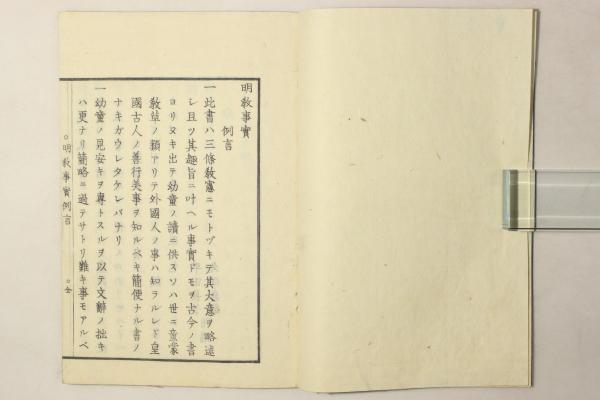 明敎事實
例言
一此書ハ三條敎憲ニモトヅキテ其大意ヲ略述
シ且ツ其趣旨ニ叶ヘル事實ドモヲ古今ノ書
ヨリヌキ出テ幼童ノ讀ニ供スソハ世ニ童蒙
敎草ノ類アリテ外國人ノ事ハ知ラルレド皇
國古人ノ善行美事ヲ知ルベキ簡便ナル書ノ
ナキガウレタケレバナリ
一幼童ノ見安キヲ專トスルヲ以テ文辭ノ拙キ
ハ更ナリ簡略ニ過テサトリ難キ事モアルベ
○明敎事實例言